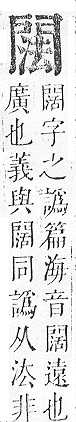 闊字之譌篇海音闊遠也
廣也義與闊同譌从非